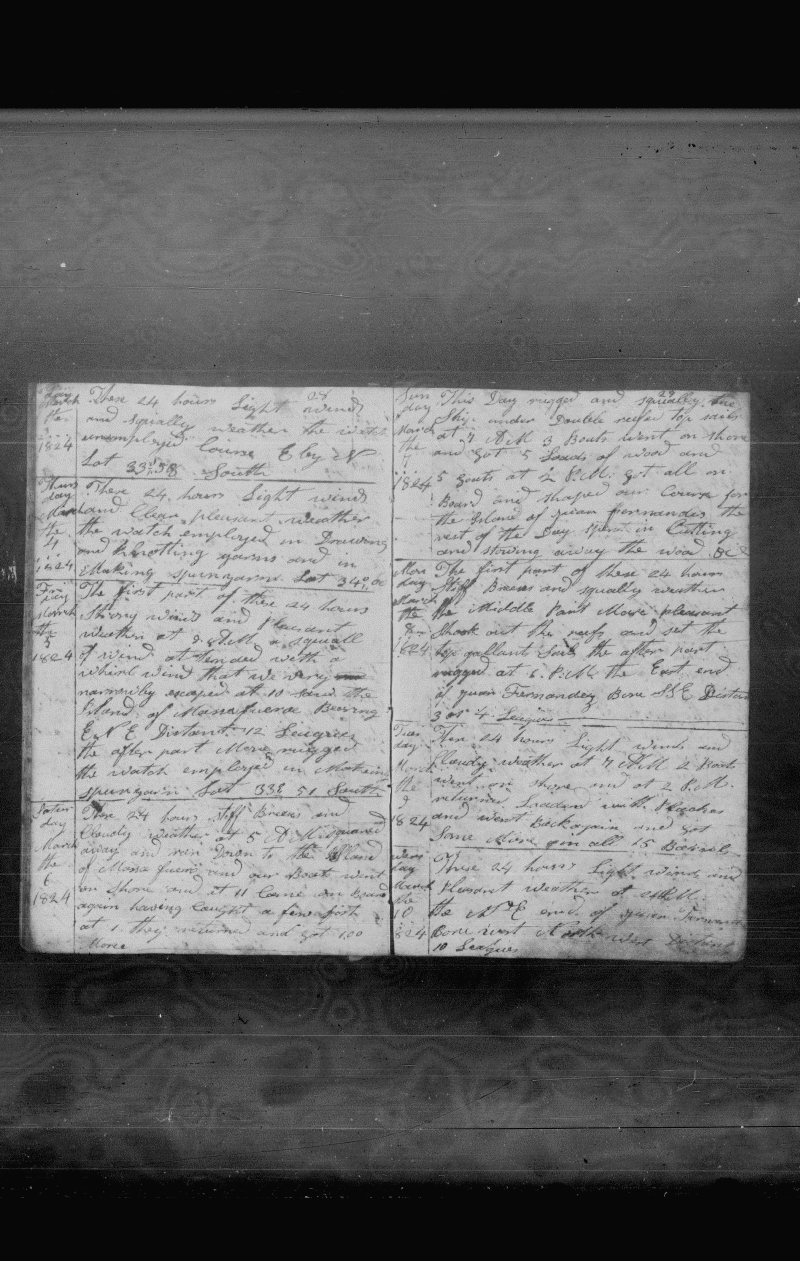 28
March
the
3
1824
These 24 hours Light winds
and squally weather the watch
unemployed Course E by N
Lat 33°58 South
Thurs
day
March
the
4
1824
These 24 hours Light winds
and Clear pleasant weather
the watch employed in Drawing
and knotting yarns and in
Making spunyarn Lat 34°,00
Fri
day
March
the
5
1824
The first part of these 24 hours
strong winds and Pleasant
weather at 9 AM a squall
of wind attended with a
whirl wind that we very
narrowly escaped at 10 saw the
Island of Massafuera Bearing
E N E Distant 12 Leagues
the after part More rugged
the watch employed in Making
spunyarn Lat 33° 51 South
Satur
day
March
the
6
1824
These 24 hours stiff Breezes and
Cloudy weather at 5 AM squared
away and ran Down to the Island
of Massafuera and our Boats went
on shore and at 11 Came on Board
again having Caught a few fish
at 1 they returned and got 100
More
29
Sun
day
March
the
7
1824
This Day rugged and squally the
Ship under Double reefed top sails
at 7 AM 3 Boats went on shore
and got 5 Loads of wood and
5 goats at 2 P.M. got all on
Board and shaped our Course for
the Island of Juan fernandes the
rest of the Day spent in Cutting
and stowing away the wood &c
Mon
day
March
the
8
1824
The first part of these 24 hours
Stiff Breezes and squally weather
the Middle Part More pleasant
Shook out the reefs and set the
top gallant Sails the after part
rugged at 6 P.M. the East end
of Juan Fernandez Bore S S E Distant
3 or 4 Leagues
Tues
day
March
the
9
1824
These 24 hours Light winds and
Cloudy weather at 7 AM 2 Boats
went on shore and at 2 P.M.
returned Loaded with Peaches
and went Back again and got
Some More in all 15 Barrels
Wens
day
March
the
10
1824
These 24 hours Light winds and
Pleasant weather at
the N E end of Juan Fernandes
Bore west North west Distant
10 Leagues